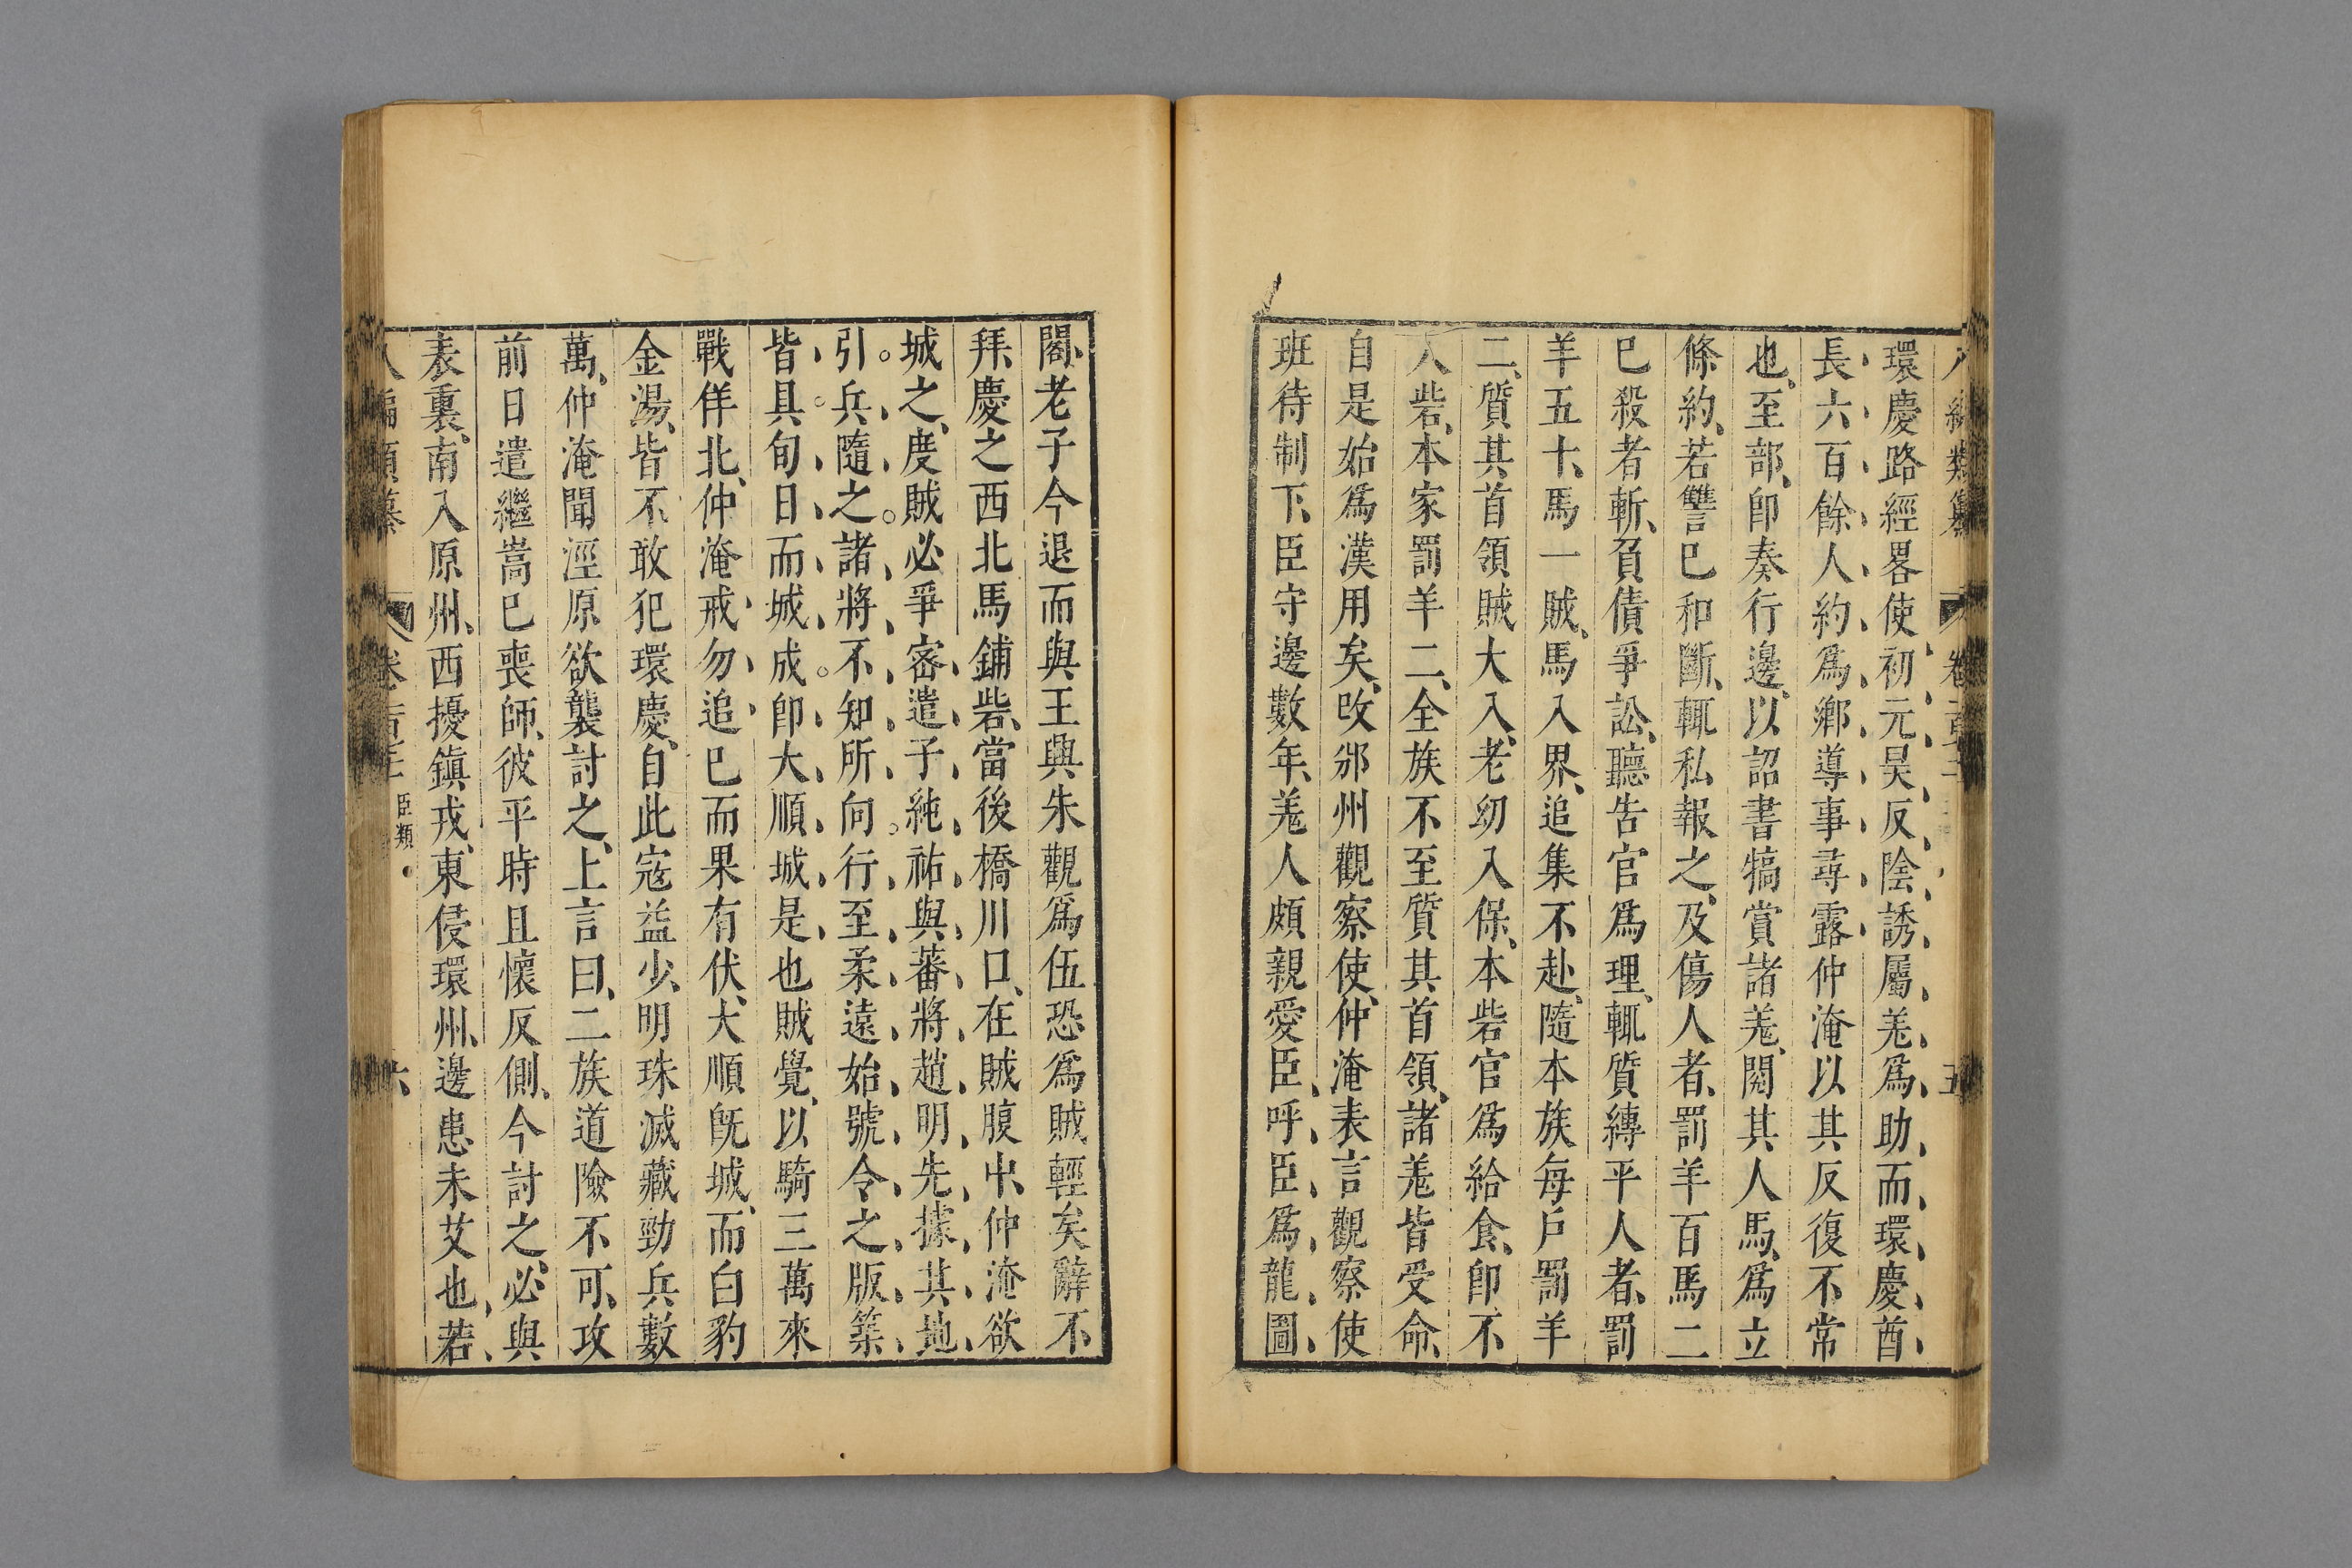 環慶路經畧使、初、元、昊、反、陰、誘、屬、羌、爲、助、而、環、慶、酋、
長、六、百、餘、人、約、爲、鄉、導、事、尋、露、仲淹以其反復不常
也、至部、卽奏行邊、以詔書犒賞諸羌、閱其人馬、爲立
條約、若讐已和斷、輒私報之、及傷人者、罰羊百馬二
已殺者斬、負債爭訟、聽告官爲理、輒質縳平人者、罰
羊五十、馬一賊、馬入界、追集不赴、隨本族每戶罰羊
二、質其首領賊大入、老幼入保、本砦官爲給食、卽不
入砦、本家罰羊二、全族不至質其首領、諸羌皆受命、
自是始爲漢用矣、改邠州觀察使、仲淹表言觀察使
班待制下、臣守邊數年、羌人頗親愛臣、呼、臣、爲、龍、圖、
閣、老子今退而與王興朱觀爲伍恐爲賊輕矣辭不
拜、慶之西北馬鋪砦、當後橋川口、在賊腹中、仲淹欲
城之、度賊必爭密、遣、子、純、祐、與、蕃、將、趙、明、先、據、其、地、
引。兵、隨、之。諸、將、不、知、所、向。行、至、柔、遠、始、號、令、之、版、築、
皆、具。旬、日、而、城、成。卽、大、順、城、是、也賊覺、以騎三萬來
戰佯北、仲淹、戒、勿、追、已而果有伏、大順旣城、而白豹
金湯、皆不敢犯環慶、自此寇益少、明珠滅藏勁兵數
萬、仲淹聞涇原欲襲討之、上言曰、二族道險不可、攻
前日遣繼嵩已喪師、彼平時且懷反側、今討之、必與
表裏、南入原州、西擾鎮戎、東侵環州、邊患未艾也、若、
臣類
六